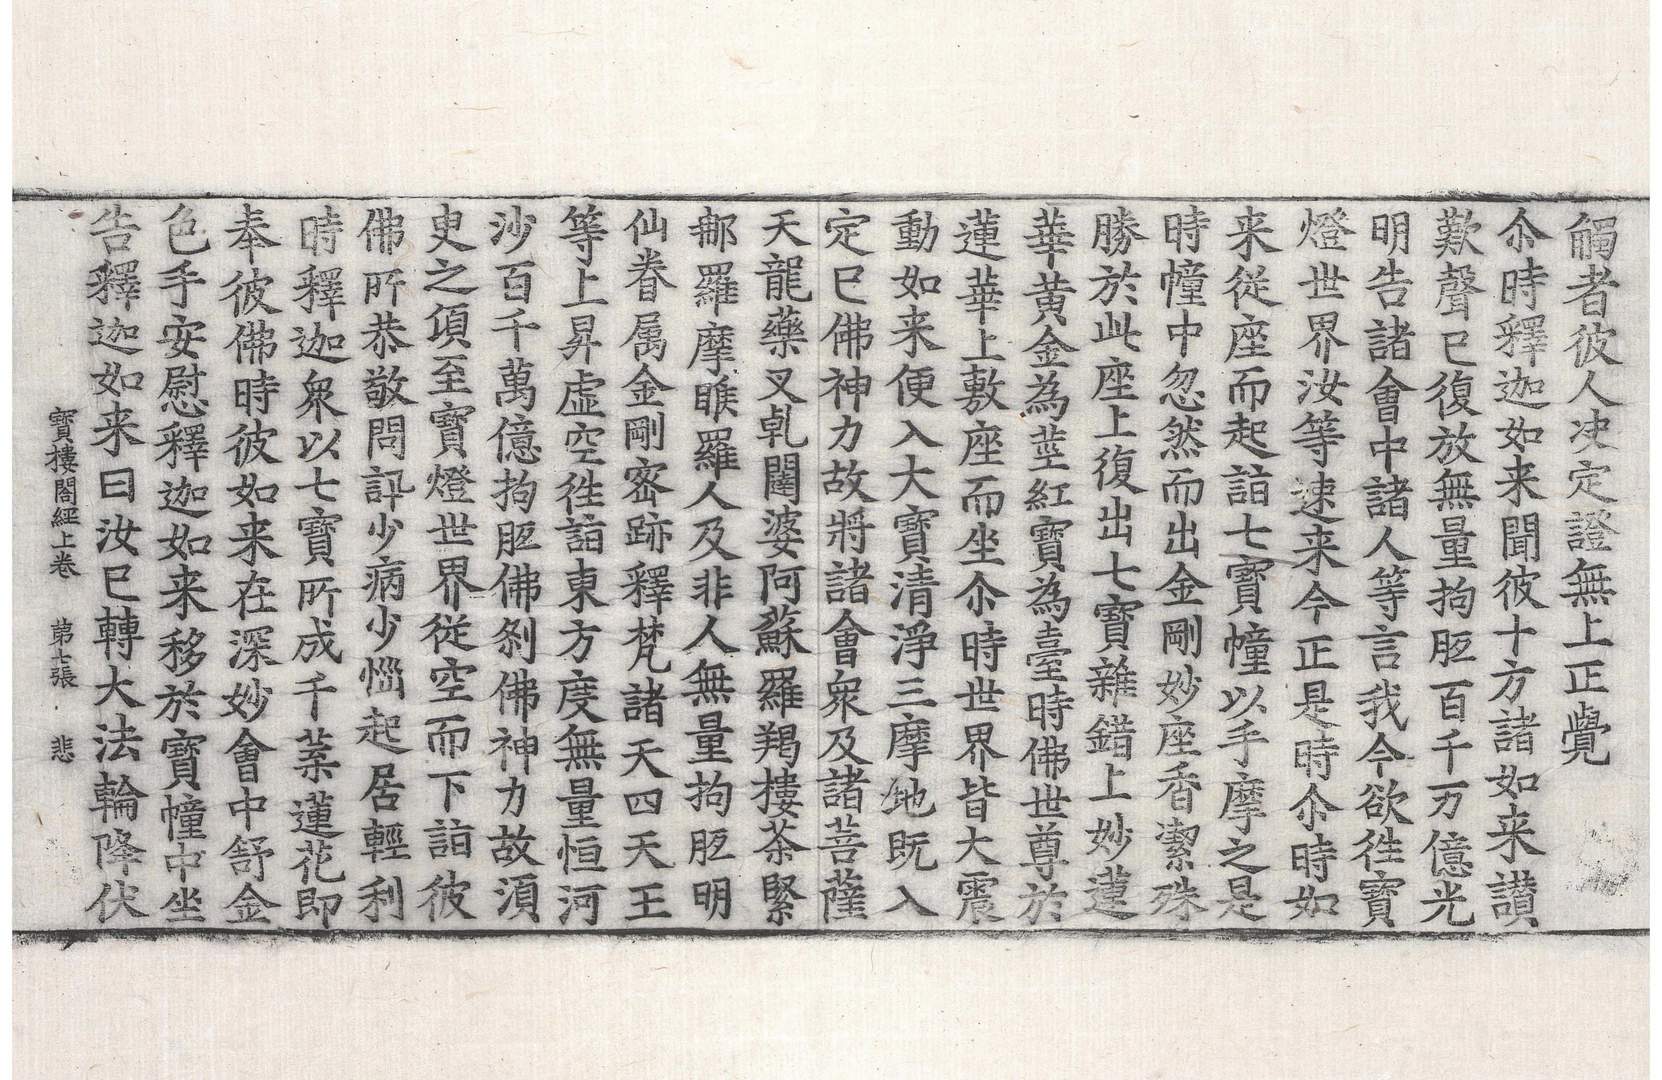 觸者彼人决定證無上正覺
尒時釋迦如来聞彼十方諸如来讃
歎聲已復放無量拘胝百千万億光
明告諸會中諸人等言我今欲徃寶
燈世界汝等速来今正是時尒時如
来從座而起詣七寶幢以手摩之是
時幢中忽然而出金剛妙座香潔殊
勝於此座上復出七寶雜錯上妙蓮
華黄金為莖紅寶為臺時佛世尊於
蓮華上敷座而坐尒時世界皆大震
動如来便入大寶清淨三摩地既入
定已佛神力故將諸會衆及諸菩薩
天龍藥叉乹闥婆阿蘇羅羯樓茶緊
那羅摩睺羅人及非人無量拘胝明
仙眷属金剛密跡釋梵諸天四天王
等上昇虚空徃詣東方度無量恒河
沙百千萬億拘胝佛刹佛神力故湏
臾之頃至寶燈世界從空而下詣彼
佛所恭敬問訊少病少惱起居輕利
時釋迦衆以七寶所成千葉蓮花即
奉彼佛時彼如来在深妙會中舒金
色手安慰釋迦如来移於寶幢中坐
告釋迦如来曰汝已轉大法輪降伏
寶樓閣經上卷　第七張　悲